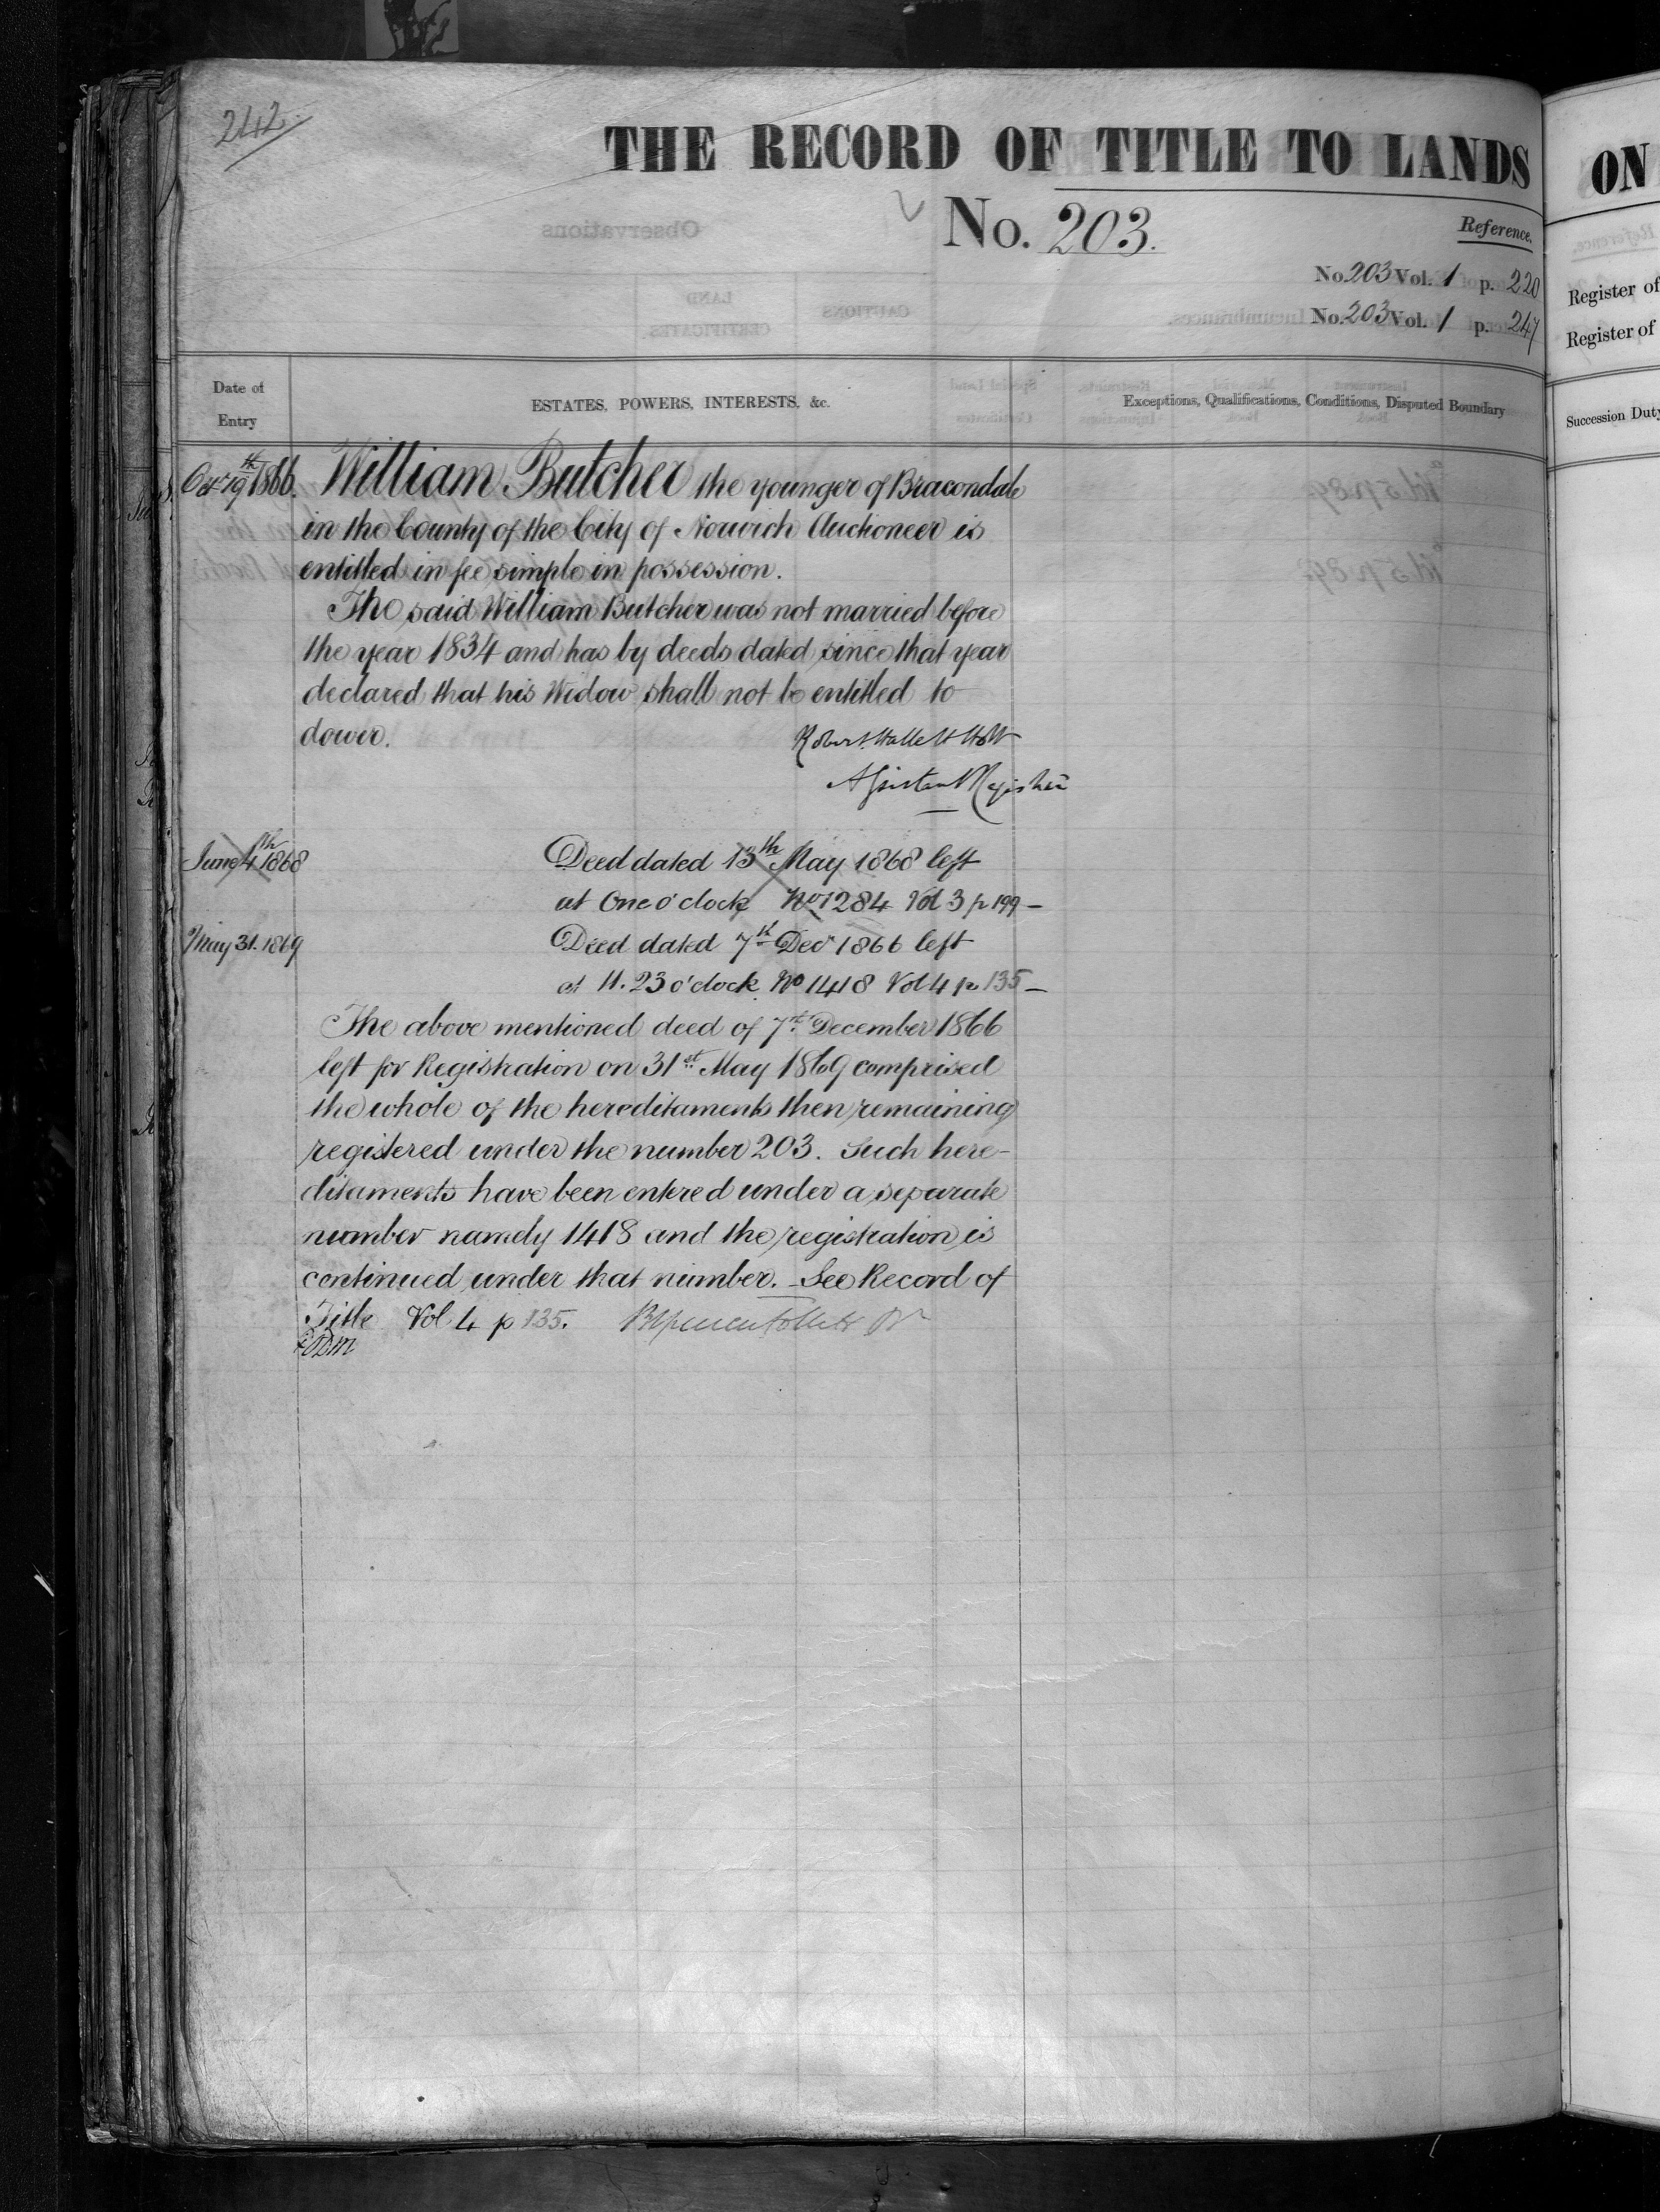 242
THE RECORD OF TITLE TO LANDS
No. 203.
Reference.
No. 203 Vol. 1 p. 220
No. 203 Vol. 1 p. 247
Date of Entry
ESTATES, POWERS, INTERESTS, &c.
Exceptions, Qualifications, Conditions, Disputed Boundary
Octr 19th 1866. William Butcher the younger of Bracondale
in the County of the City of Norwich Auctioneer is
entitled in fee simple in possession.
The said William Butcher was not married before
the year 1834 and has by deeds dated since that year
declared that his Widow shall not be entitled to
dower.
Robert Hallett Holt
Assistant Registrar
June 4th 1868 Deed dated 13th May 1868 left
at One o'clock No 1284 Vol 3 p 199 –
May 31. 1869 Deed dated 7th Decr 1866 left
at 11.23 o'clock No 1418 Vol 4 p 135 –
The above mentioned deed of 7th December 1866
left for Registration on 31st May 1869 comprised
the whole of the hereditaments then remaining
registered under the number 203. Such here-
ditaments have been entered under a separate
number namely 1418 and the registration is
continued under that number. – See Record of
Title Vol 4 p 135.
ON
Register of
Register of
Succession Duty